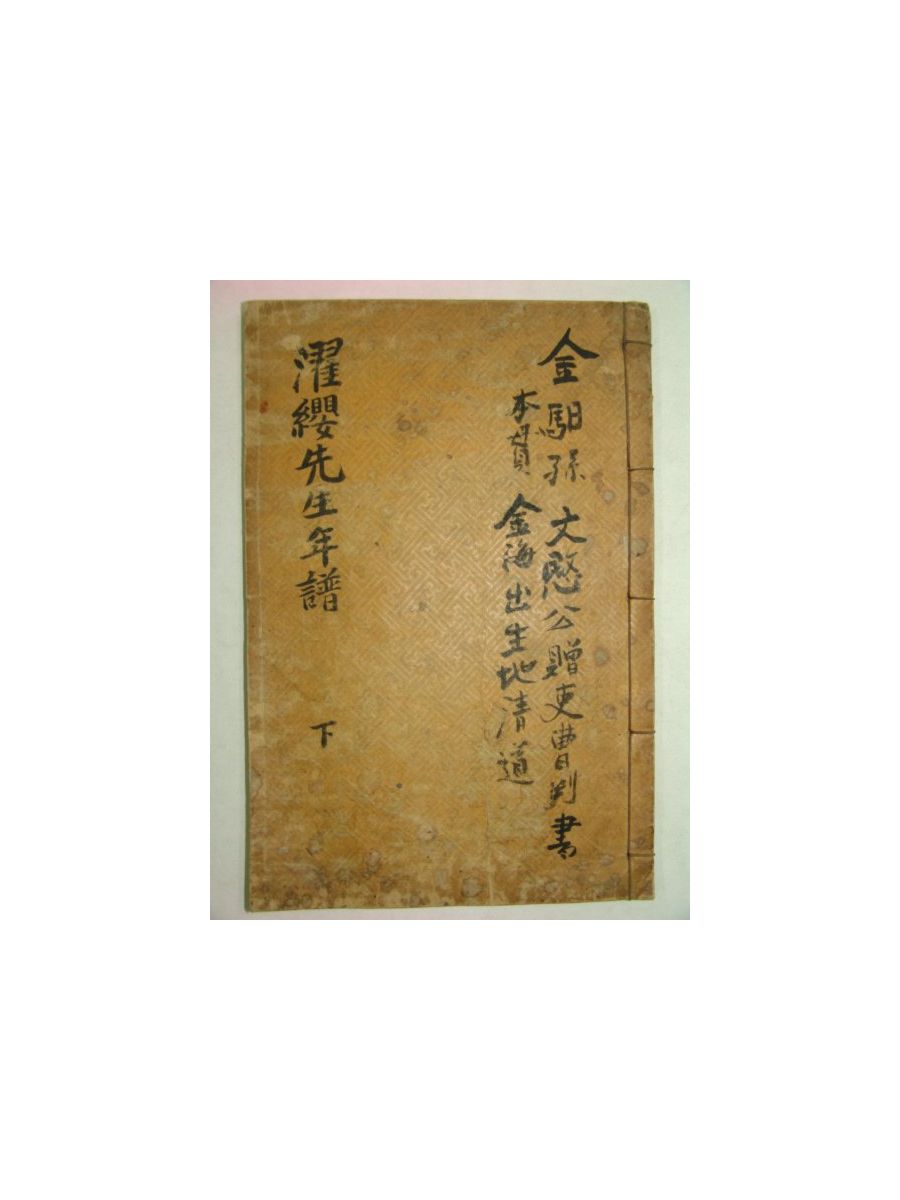 金馹孫 文愍公贈吏曹判書
本貫 金海出生地清道
濯纓先生年譜 下